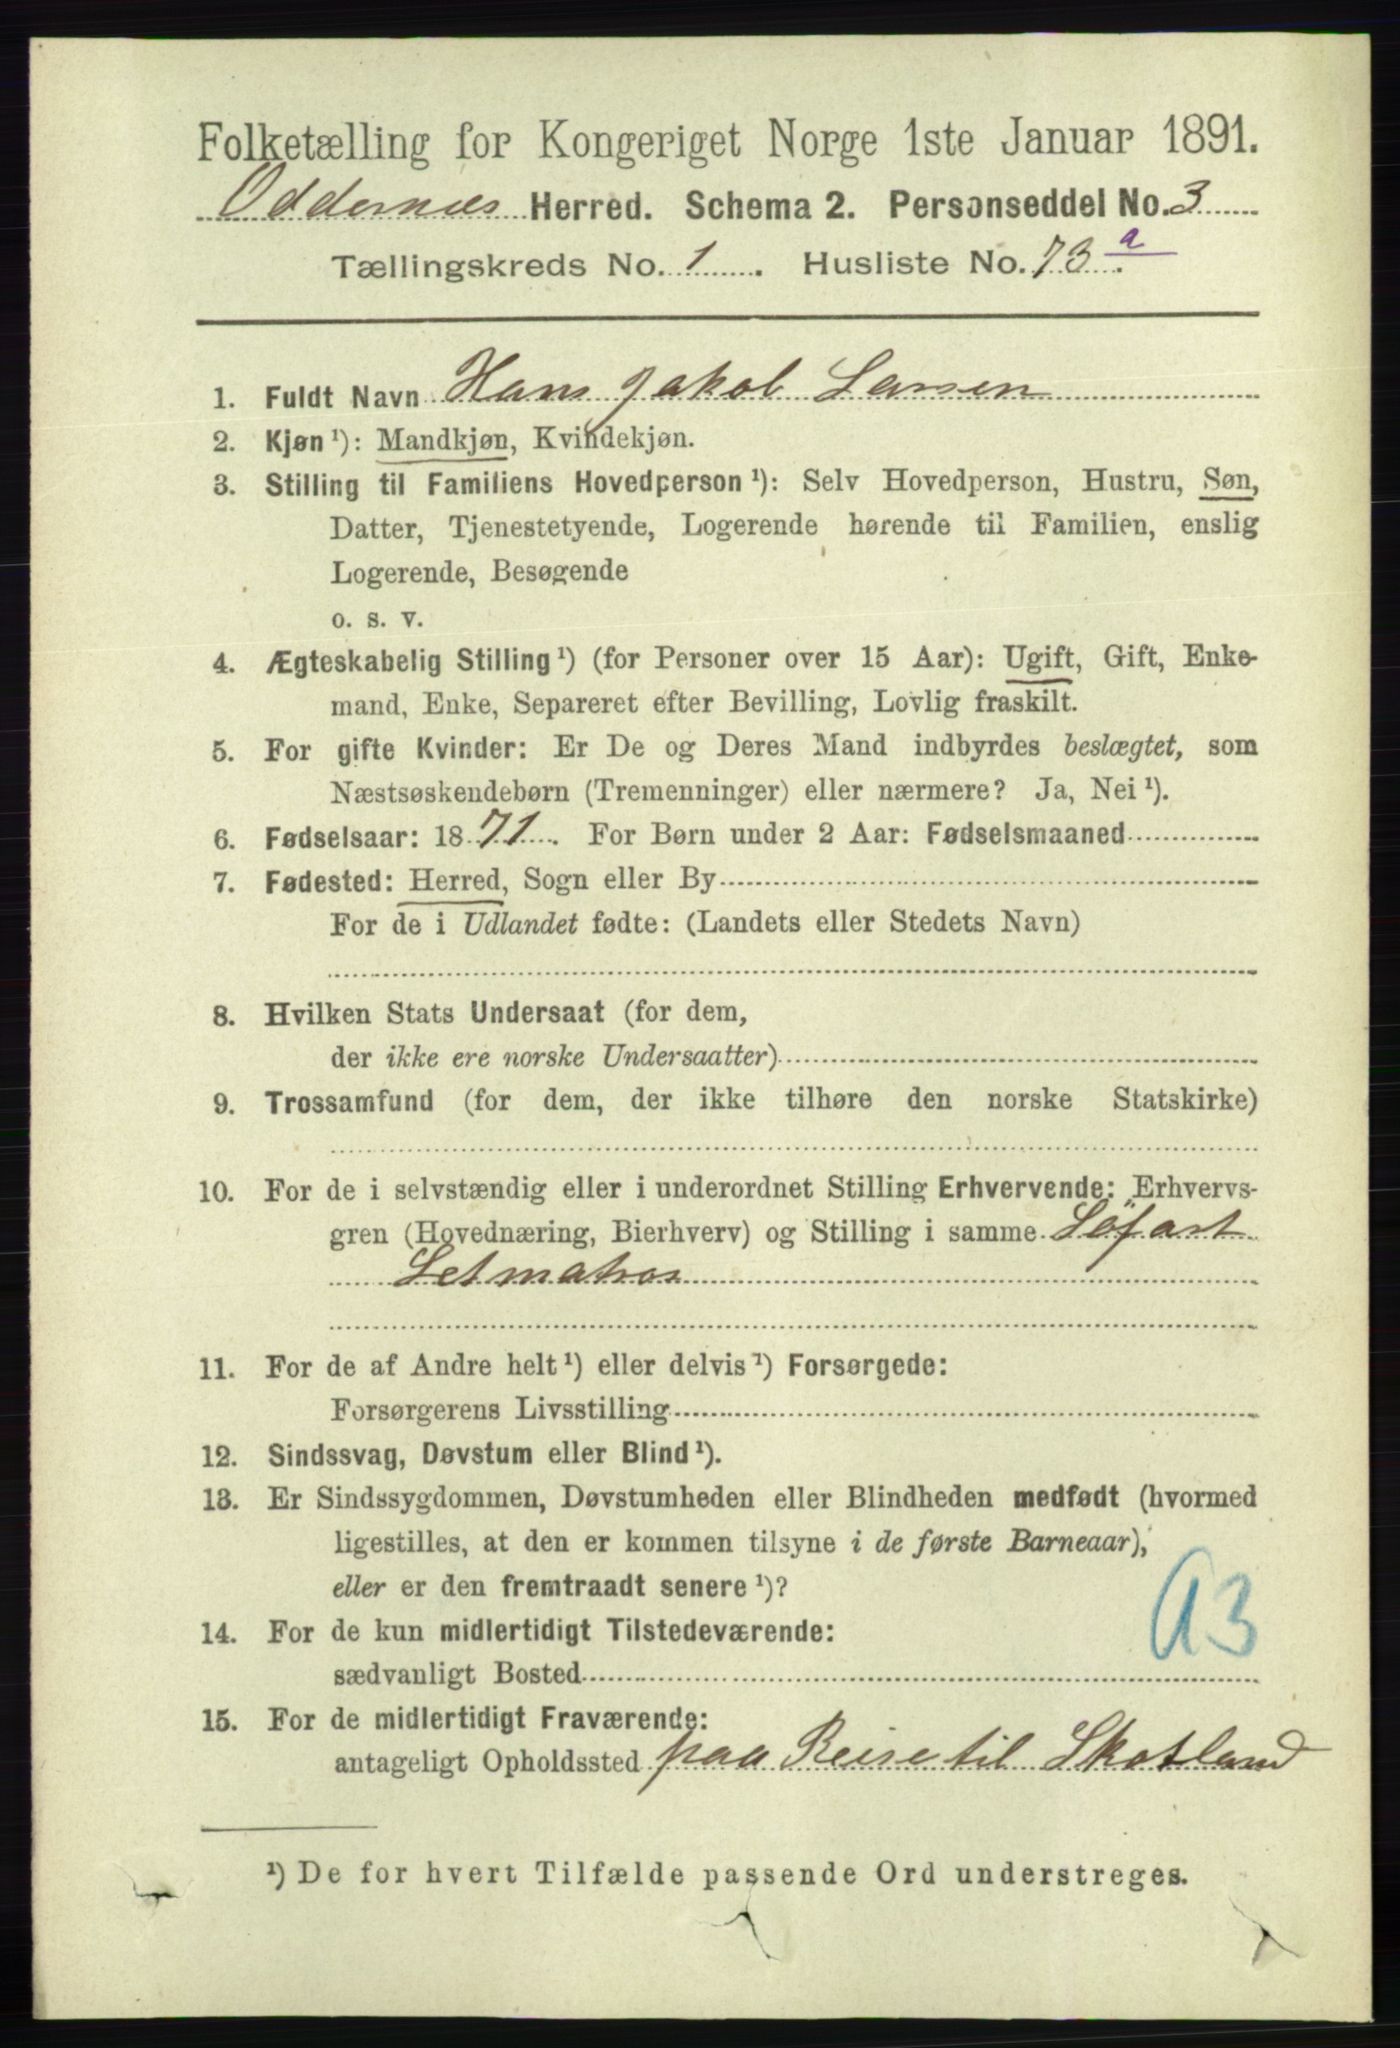 Folketælling for Kongeriget Norge 1ste Januar 1891.
Oddernæs Herred. Schema 2. Personseddel No. 3
Tællingskreds No. 1. Husliste No. 73 a.
1. Fuldt Navn Hans Jakob Larsen
2. Kjøn ¹): Mandkjøn, Kvindekjøn.
3. Stilling til Familiens Hovedperson ¹): Selv Hovedperson, Hustru, Søn,
Datter, Tjenestetyende, Logerende hørende til Familien, enslig
Logerende, Besøgende
o. s. v.
4. Ægteskabelig Stilling ¹) (for Personer over 15 Aar): Ugift, Gift, Enke-
mand, Enke, Separeret efter Bevilling, Lovlig fraskilt.
5. For gifte Kvinder: Er De og Deres Mand indbyrdes beslægtet, som
Næstsøskendebørn (Tremenninger) eller nærmere? Ja, Nei ¹).
6. Fødselsaar: 1871. For Børn under 2 Aar: Fødselsmaaned
7. Fødested: Herred, Sogn eller By
For de i Udlandet fødte: (Landets eller Stedets Navn)
8. Hvilken Stats Undersaat (for dem,
der ikke ere norske Undersaatter)
9. Trossamfund (for dem, der ikke tilhøre den norske Statskirke)
10. For de i selvstændig eller i underordnet Stilling Erhvervende: Erhvervs-
gren (Hovednæring, Bierhverv) og Stilling i samme Söfart
Letmatros
11. For de af Andre helt ¹) eller delvis ¹) Forsørgede:
Forsørgerens Livsstilling
12. Sindssvag, Døvstum eller Blind ¹).
13. Er Sindssygdommen, Døvstumheden eller Blindheden medfødt (hvormed
ligestilles, at den er kommen tilsyne i de første Barneaar),
eller er den fremtraadt senere ¹)?
A3
14. For de kun midlertidigt Tilstedeværende:
sædvanligt Bosted
15. For de midlertidigt Fraværende:
antageligt Opholdssted paa Reise til Skotland
¹) De for hvert Tilfælde passende Ord understreges.